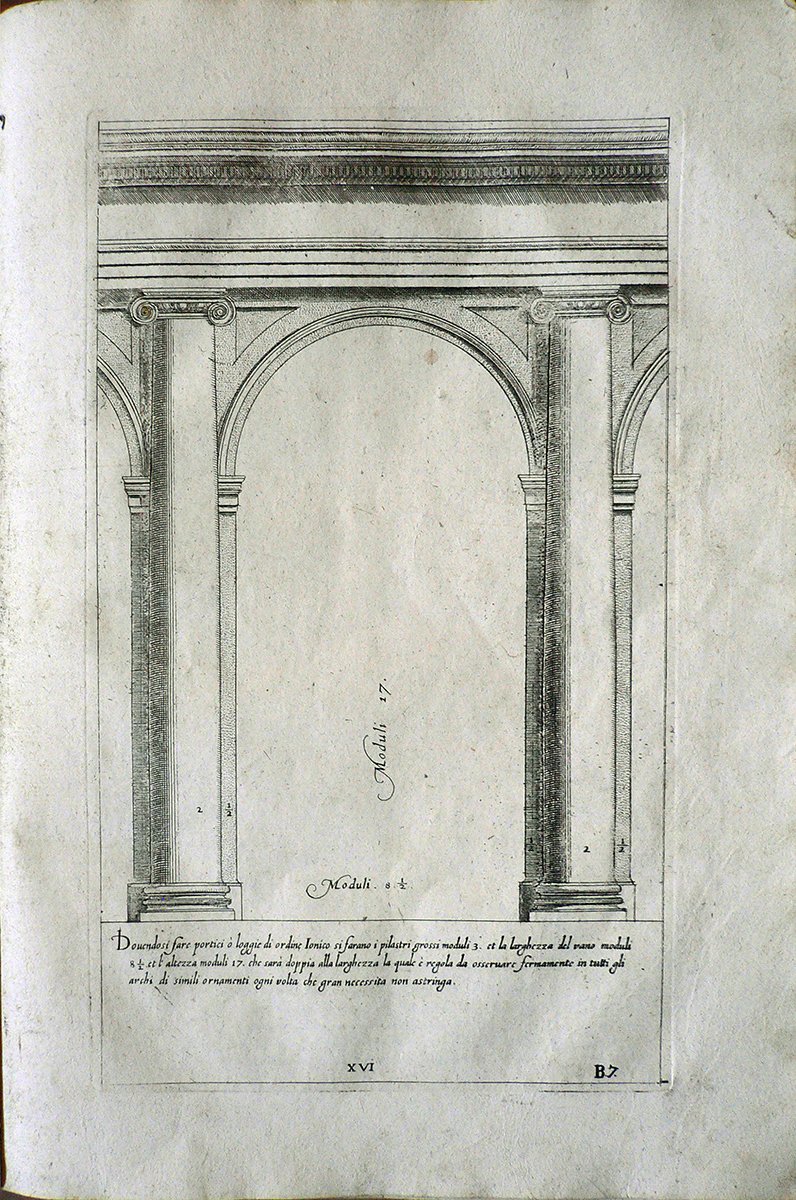 Moduli 17.
2 1/2
1/2 2 1/2
Moduli. 8 1/2.
Douendosi fare portici ò loggie di ordine Ionico si farano i pilastri grossi moduli 3. et la larghezza del vano moduli
8 1/2 et l'altezza moduli 17. che sarà doppia alla larghezza la quale è regola da osseruare fermamente in tutti gli
archi di simili ornamenti ogni volta che gran necessita non astringa.
XVI
B.7.